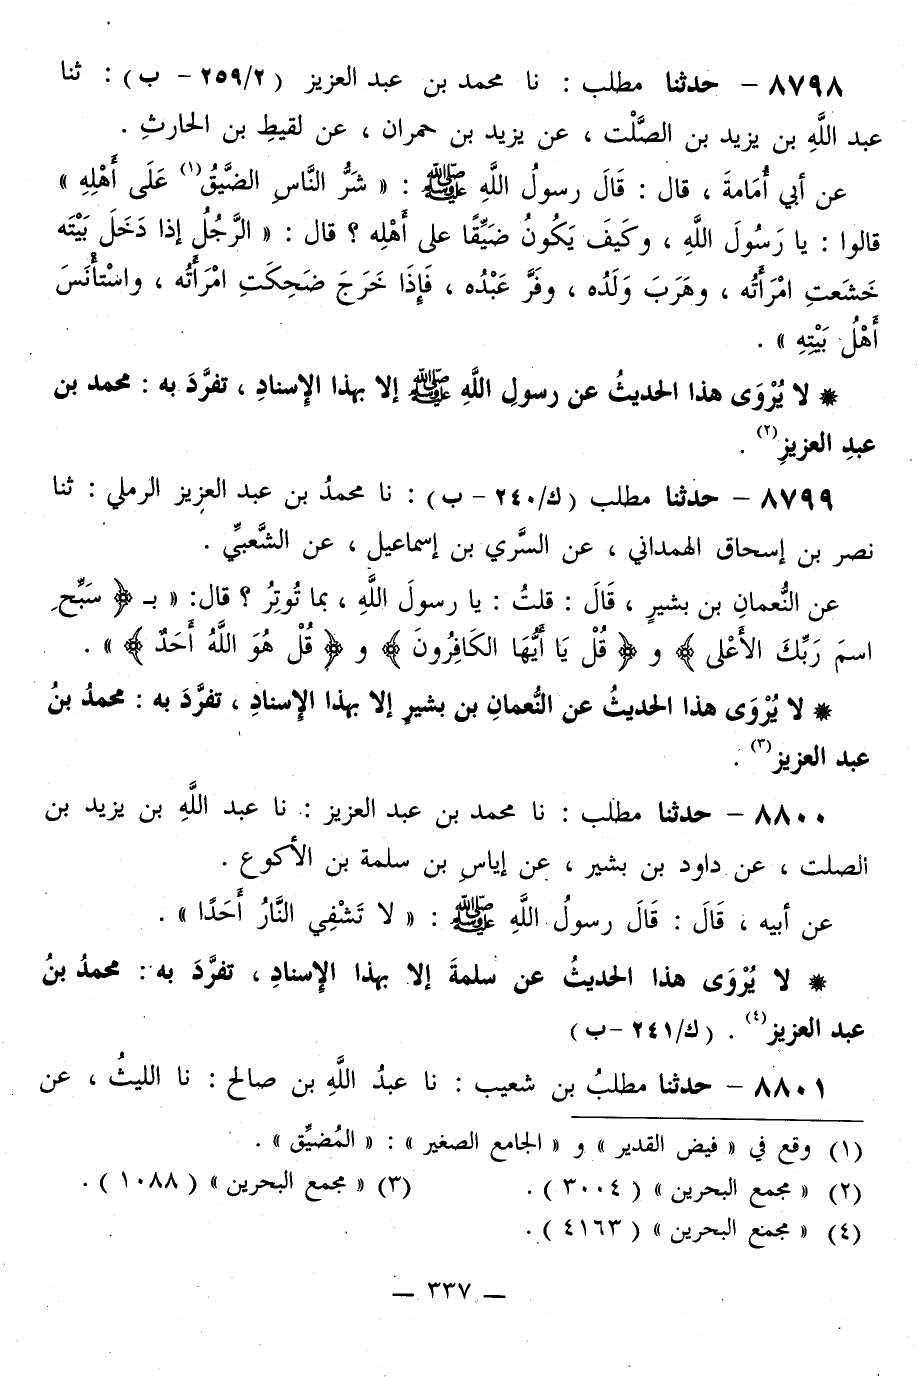 ٨٧٩٨ – حدثنا مطلب : نا محمد بن عبد العزيز ( ٢٥٩/٢ – ب ) : ثنا
عبد اللَّهِ بن يزيد بن الصَّلْت ، عن يزيد بن حمران ، عن لقيطِ بن الحارثِ .
عن أبي أُمَامةَ ، قال : قَالَ رسولُ اللَّهِ ﷺ : « شَرُّ النَّاسِ الضَّيِّقُ(١) عَلَى أَهْلِهِ »
قالوا : يا رَسُولَ اللَّهِ ، وكَيفَ يَكُونُ ضَيِّقًا على أَهْلِه ؟ قال : « الرَّجُلُ إذا دَخَلَ بَيْتَه
خَشَعتِ امْرَأَتُه ، وهَرَبَ وَلَدُه ، وفَرَّ عَبْدُه ، فَإِذَا خَرَجَ ضَحِكَتِ امْرَأَتُه ، واسْتأْنَسَ
أَهْلُ بَيْتِهِ » .
* لا يُرْوَى هذا الحديثُ عن رسولِ اللَّهِ ﷺ إلا بهذا الإِسنادِ ، تفرَّدَ به : محمد بن
عبدِ العزيزِ(٢) .
٨٧٩٩ – حدثنا مطلب ( ك/٢٤٠ – ب ) : نا محمدُ بن عبد العزيز الرملي : ثنا
نصر بن إسحاق الهمداني ، عن السَّري بن إسماعيل ، عن الشَّعبيِّ .
عن النُّعمانِ بن بشيرٍ ، قَالَ : قلتُ : يا رسولَ اللَّهِ ، بما تُوتِرُ ؟ قال: « بـ ﴿ سَبِّحِ
اسمَ رَبِّكَ الأَعْلى ﴾ و ﴿ قُلْ يَا أَيُّهَا الكَافِرُونَ ﴾ و ﴿ قُلْ هُوَ اللَّهُ أَحَدٌ ﴾ » .
* لا يُرْوَى هذا الحديثُ عن النُّعمانِ بن بشيرٍ إلا بهذا الإِسنادِ ، تفرَّدَ به : محمدُ بنُ
عبد العزيز(٣) .
٨٨٠٠ – حدثنا مطلب : نا محمد بن عبد العزيز : نا عبد اللَّهِ بن يزيد بن
الصلت ، عن داود بن بشير ، عن إياسِ بن سلمة بن الأكوع .
عن أبيه ، قَالَ : قَالَ رسولُ اللَّهِ ﷺ : « لا تَشْفِي النَّارُ أَحَدًا » .
* لا يُرْوَى هذا الحديثُ عن سلمةَ إلا بهذا الإِسنادِ ، تفرَّدَ به : محمدُ بنُ
عبد العزيز(٤) . ( ك/٢٤١ – ب )
٨٨٠١ – حدثنا مطلبُ بن شعيب : نا عبدُ اللَّهِ بن صالح : نا الليثُ ، عن
(١) وقع في « فيض القدير » و « الجامع الصغير » : « المُضيِّق » .
(٢) « مجمع البحرين » ( ٣٠٠٤ ) . (٣) « مجمع البحرين » ( ١٠٨٨ ) .
(٤) « مجمع البحرين » ( ٤١٦٣ ) .
— ٣٣٧ —